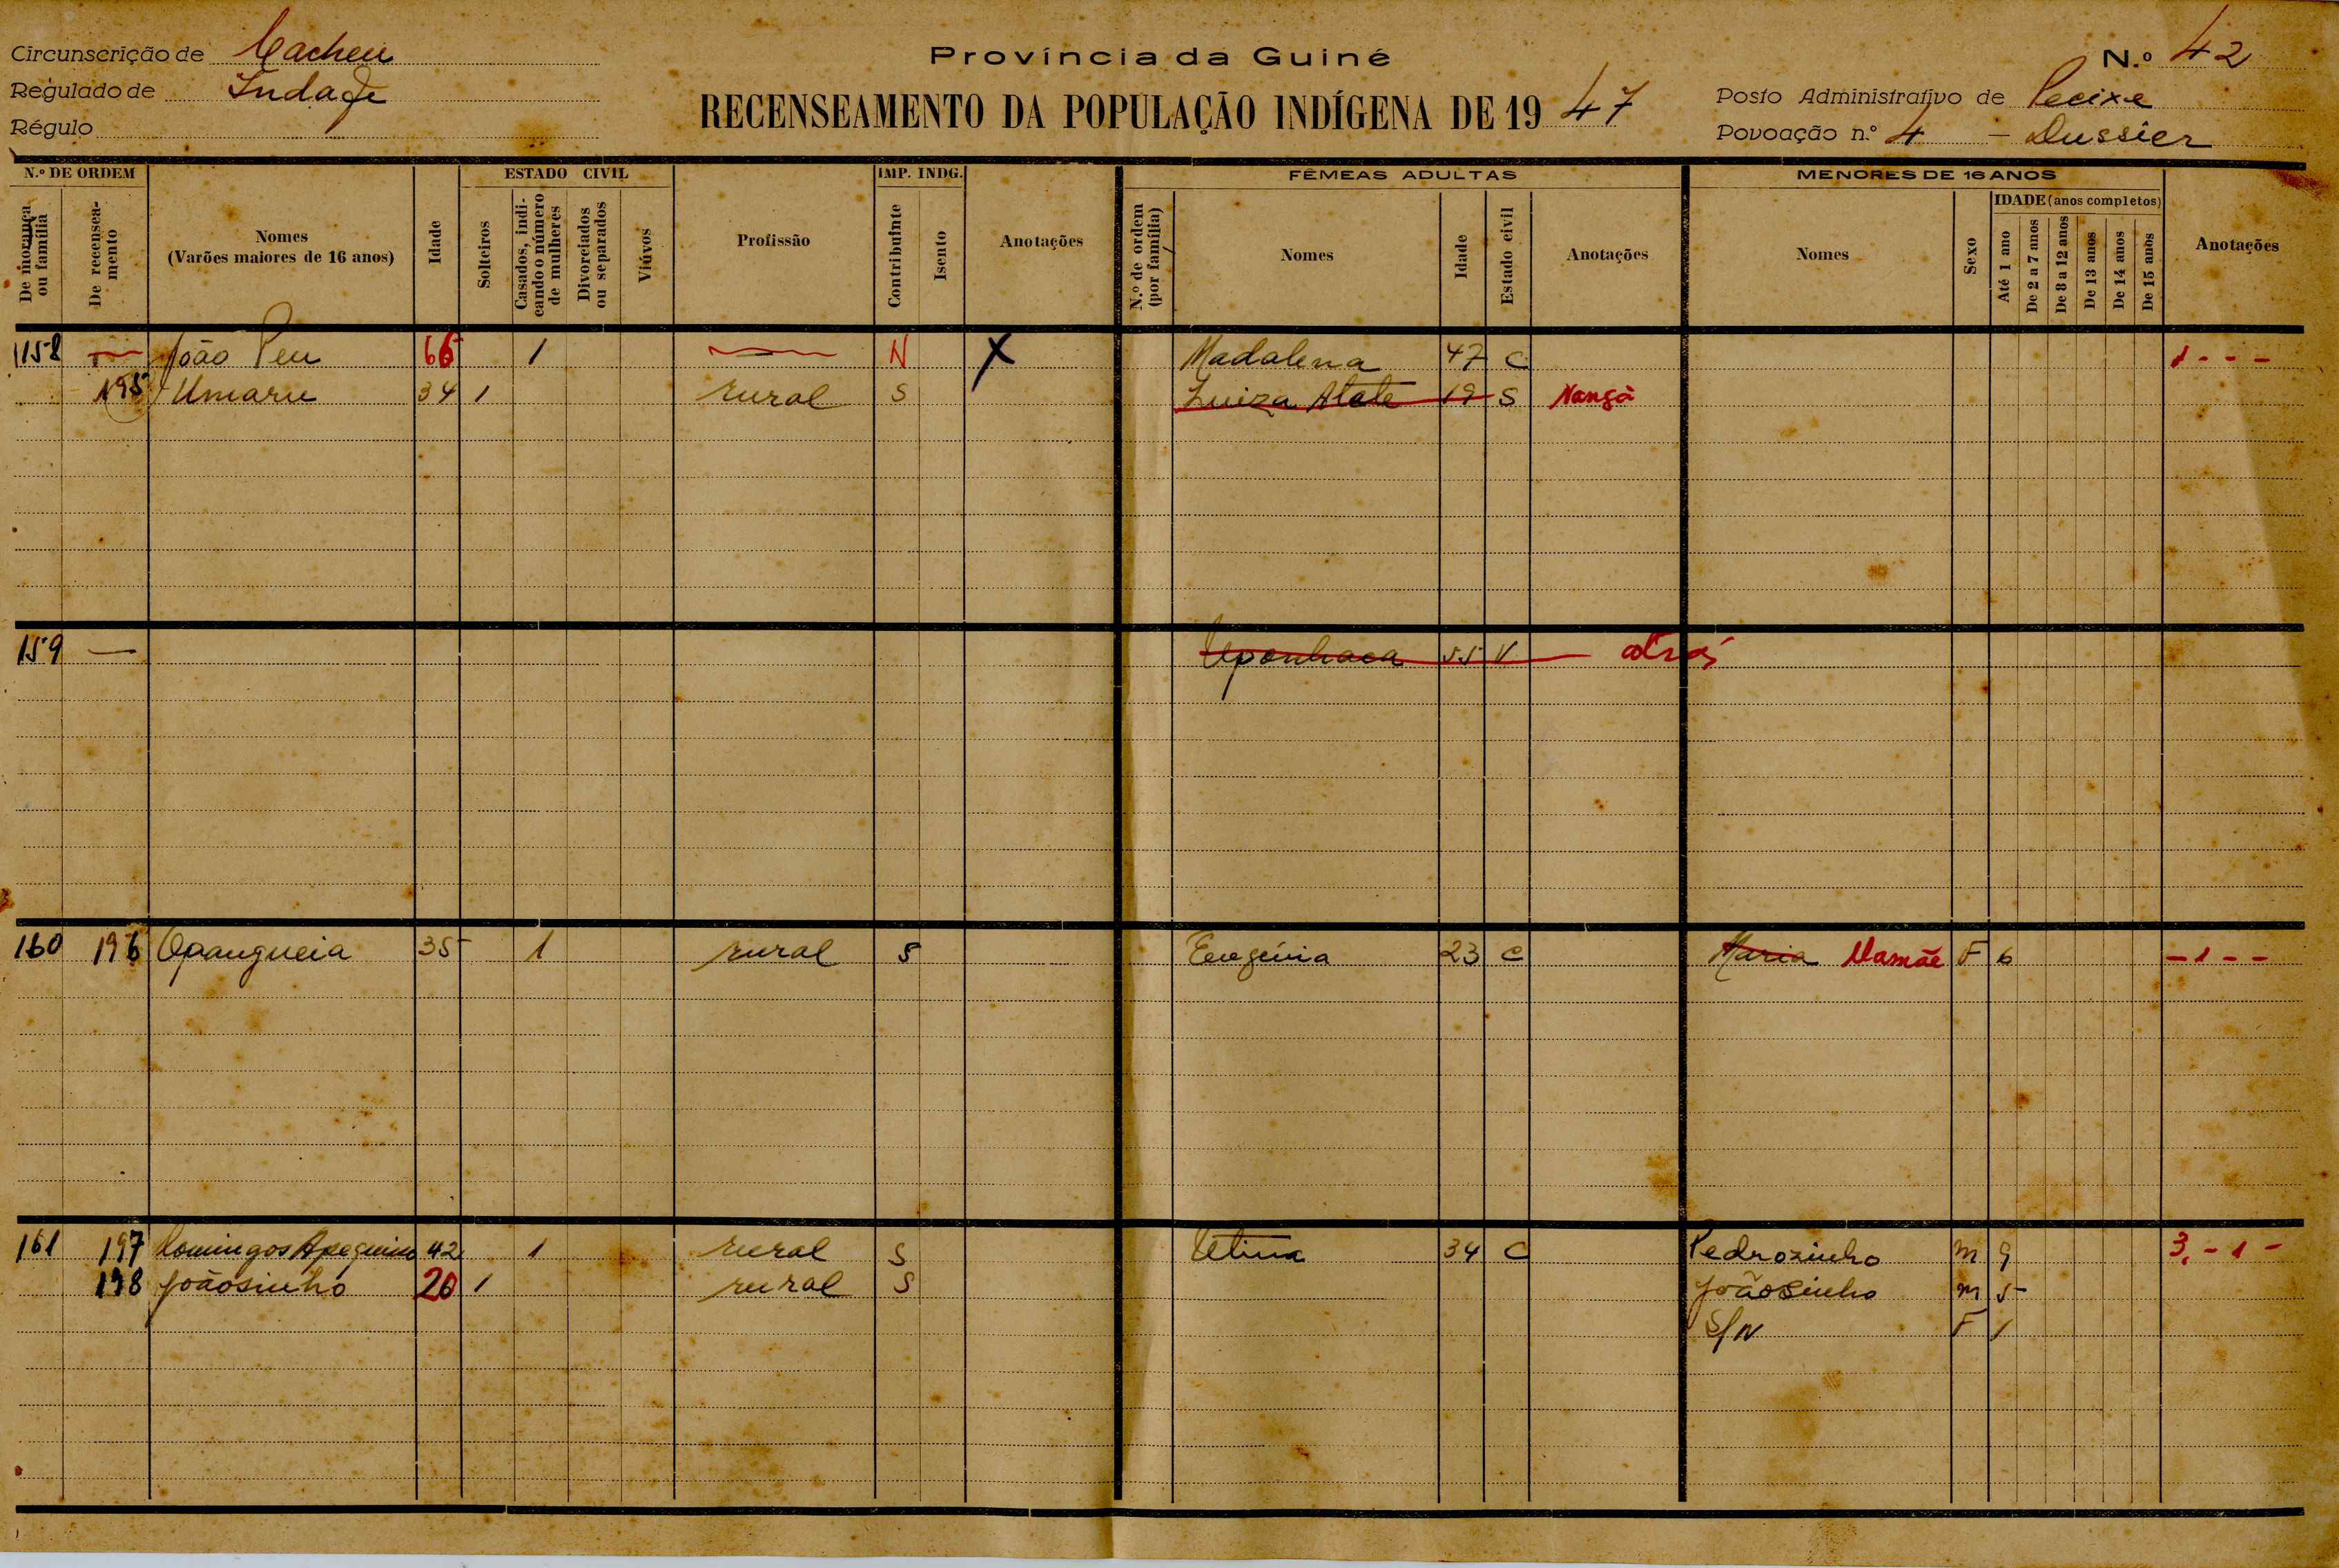 Circunscrição de Cacheu
Província da Guiné
N.º 42
Regulado de
Régulo
RECENSEAMENTO DA POPULAÇÃO INDÍGENA DE 1947
Posto Administrativo de Pecixe
Povoação n.º 4 - Dussier
N.º DE ORDEM
De morança ou família
De recenseamento
Nomes
(Varões maiores de 16 anos)
Idade
ESTADO CIVIL
Solteiros
Casados, indicando o número de mulheres
Divorciados ou separados
Viúvos
Profissão
IMP. INDG.
Contribuinte
Isento
Anotações
FÊMEAS ADULTAS
N.º de ordem (por família)
Nomes
Idade
Estado civil
Anotações
MENORES DE 16 ANOS
Nomes
Sexo
IDADE (anos completos)
Até 1 ano
De 2 a 7 anos
De 8 a 12 anos
De 13 anos
De 14 anos
De 15 anos
Anotações
158 — João Peu 66 1 — N X Madalena 47 C 1 - - -
195 Umaru 34 1 rural S Luiza Atate 19 S
159 — 55 V
160 196 Opangueia 35 1 rural S Eugénia 23 C Maria Mamãe F 6 - 1 - -
161 197 Domingos 42 1 rural S Utima 34 C Pedrozinho M 9 3 - 1 -
198 Joãosinho 20 1 rural S Joãosinho M 5
S/N F 1